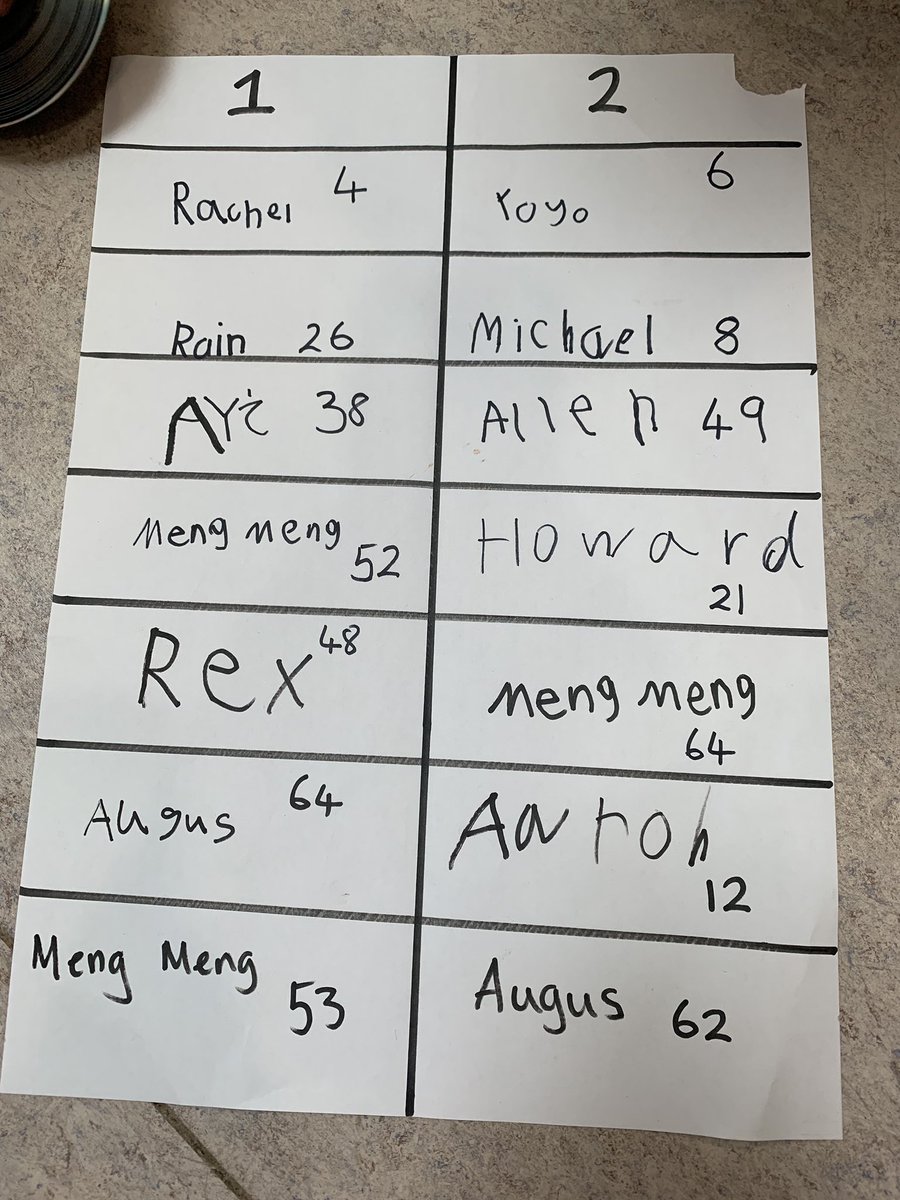 1 2
Rachel 4 Yoyo 6
Rain 26 Michael 8
Ari 38 Allen 49
Meng meng 52 Howard 21
Rex 48 meng meng 64
Augus 64 Aaron 12
Meng Meng 53 Augus 62